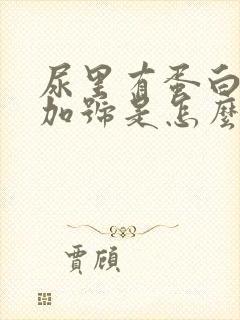 尿里有蛋白
加號是怎麼
賈頎